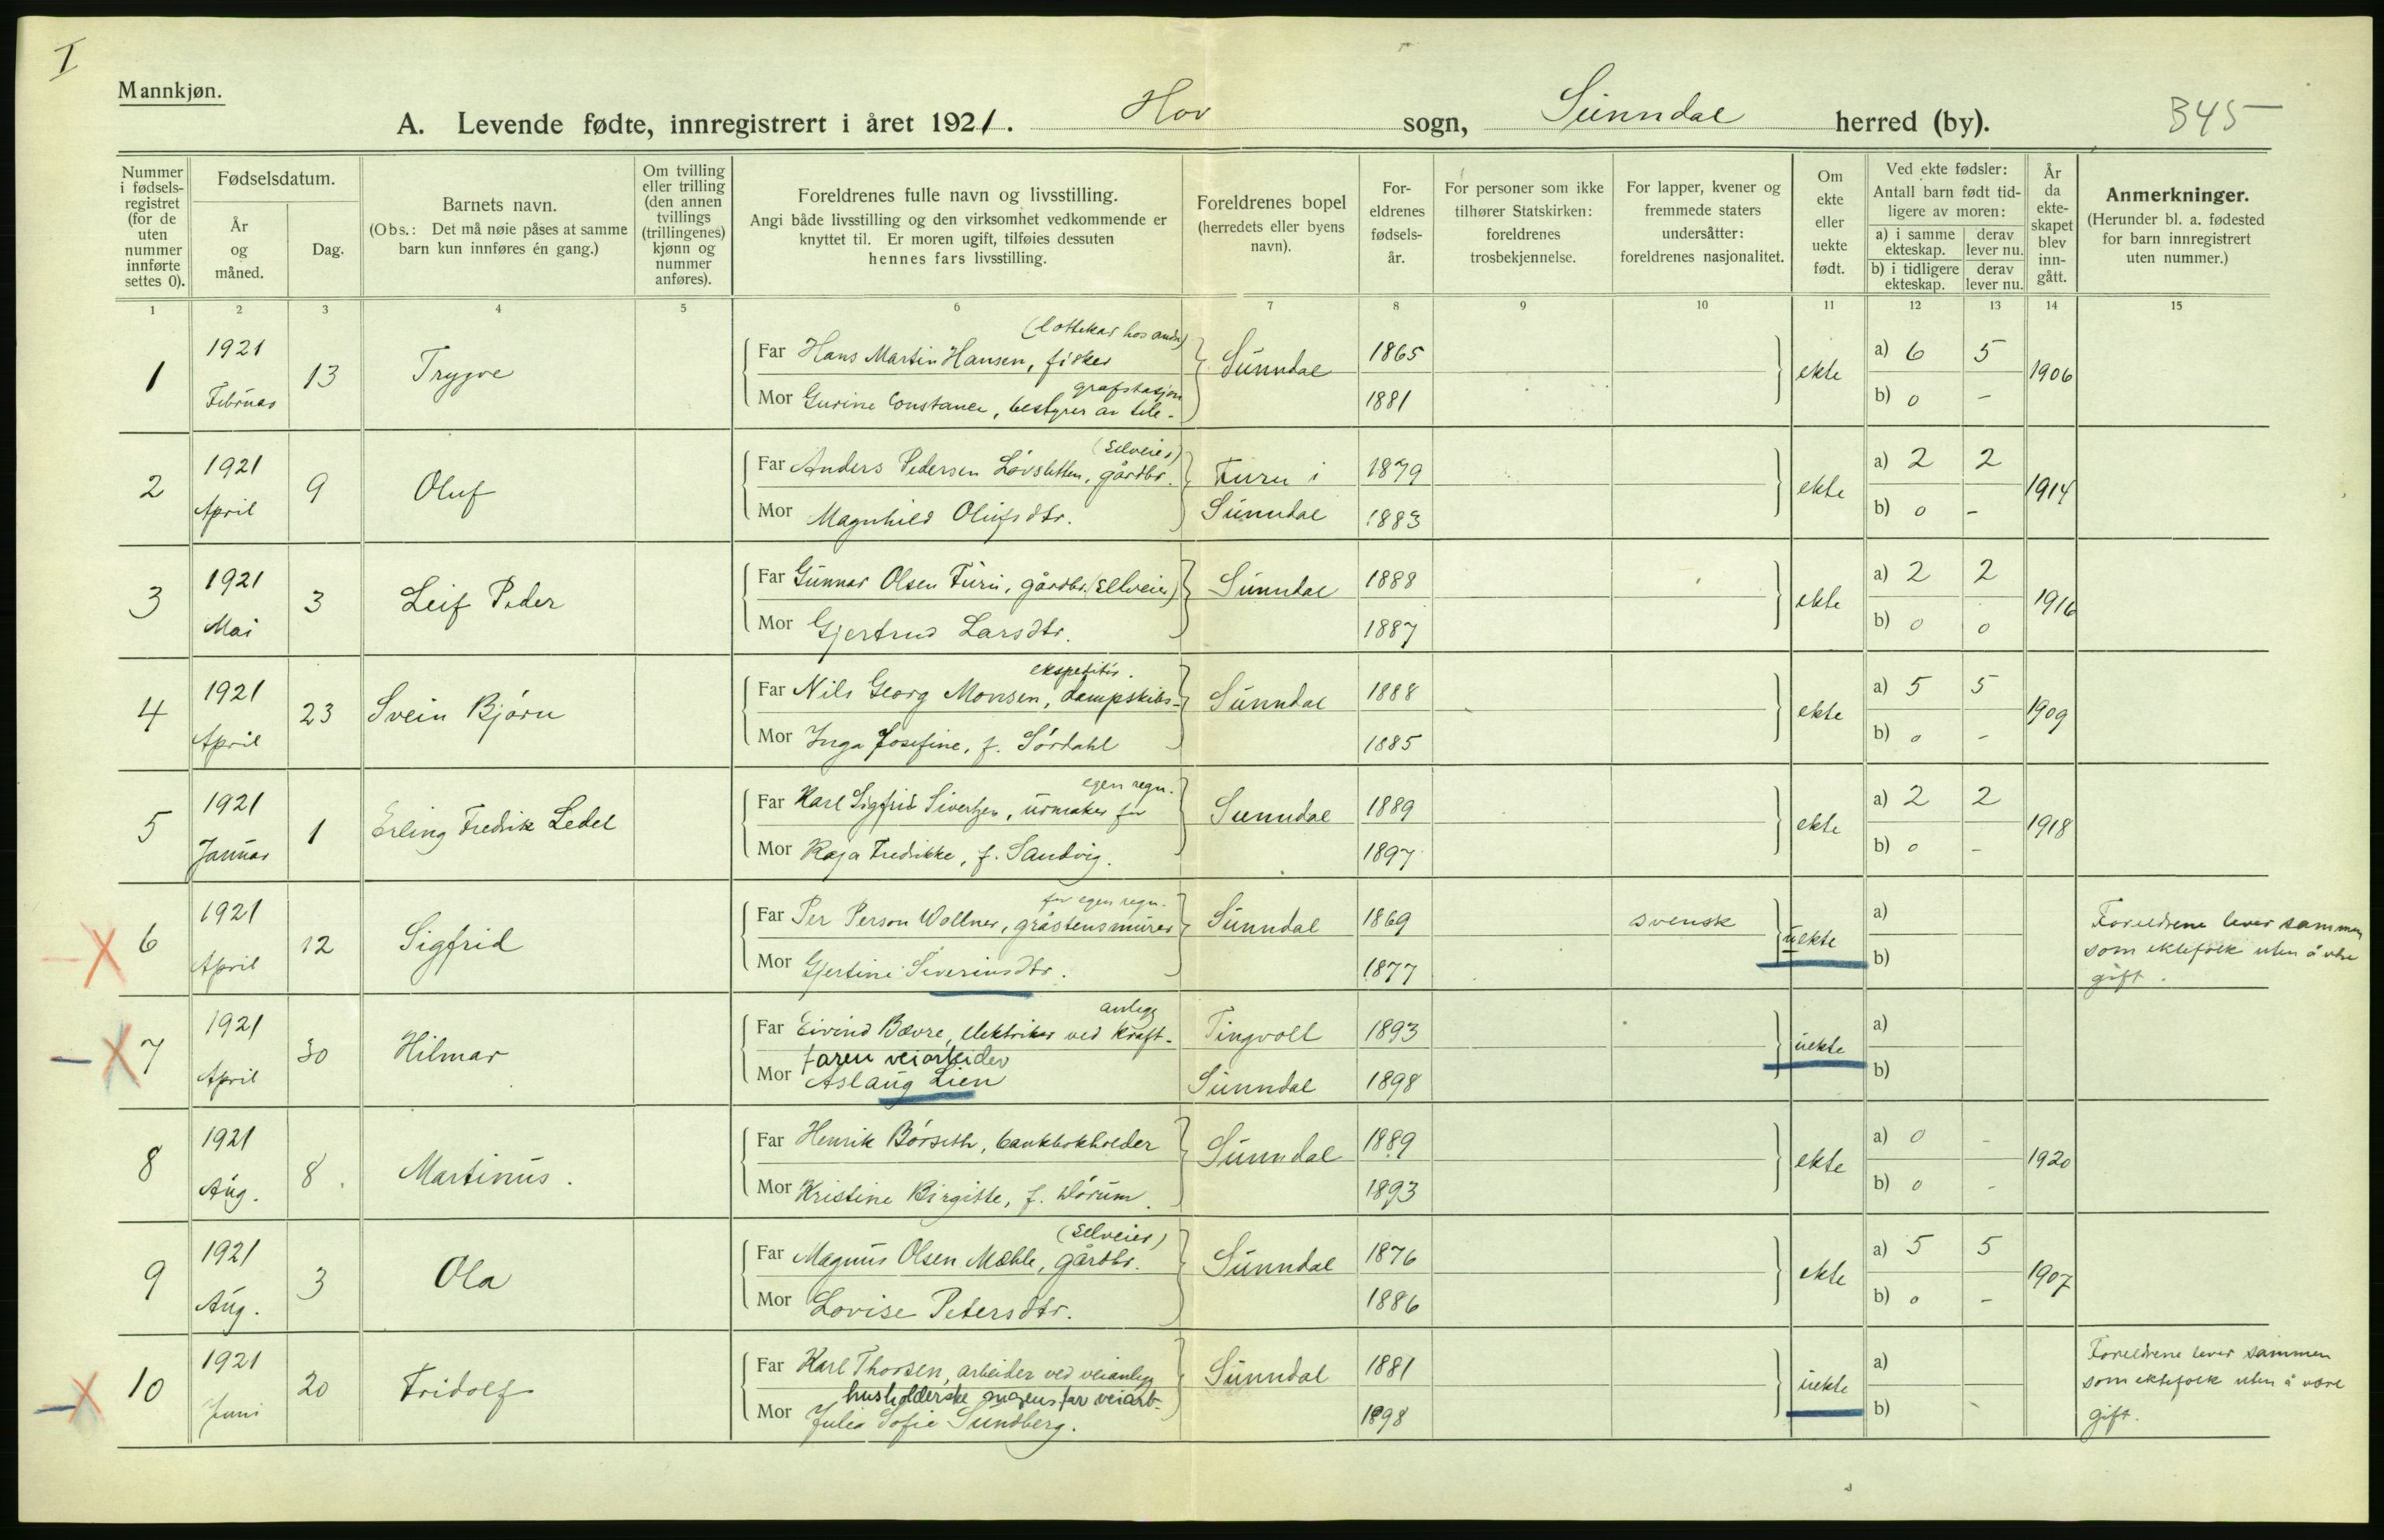 I
Mannkjøn.
A. Levende fødte, innregistrert i året 1921. Hov sogn, Sunndal herred (by). 345
Nummer i fødselsregistret (for de uten nummer innførte settes 0).
Fødselsdatum.
År og måned.
Dag.
Barnets navn.
(Obs.: Det må nøie påses at samme barn kun innføres én gang.)
Om tvilling eller trilling (den annen tvillings (trillingenes) kjønn og nummer anføres).
Foreldrenes fulle navn og livsstilling.
Angi både livsstilling og den virksomhet vedkommende er knyttet til. Er moren ugift, tilføies dessuten hennes fars livsstilling.
Foreldrenes bopel (herredets eller byens navn).
Foreldrenes fødselsår.
For personer som ikke tilhører Statskirken: foreldrenes trosbekjennelse.
For lapper, kvener og fremmede staters undersåtter: foreldrenes nasjonalitet.
Om ekte eller uekte født.
Ved ekte fødsler: Antall barn født tidligere av moren:
a) i samme ekteskap. derav lever nu.
b) i tidligere ekteskap. derav lever nu.
År da ekteskapet blev inngått.
Anmerkninger.
(Herunder bl. a. fødested for barn innregistrert uten nummer.)
1 2 3 4 5 6 7 8 9 10 11 12 13 14 15
1 1921 Februar 13 Trygve
Far Hans Martin Hansen, fisker (lottekar hos andre) Sunndal 1865 ekte a) 6 5 1906
Mor Gurine Constance, bestyrer av telegrafstasjon 1881 b) 0 -
2 1921 April 9 Oluf
Far Anders Pedersen Løvsletten, gårdbr. (selveier) Furu i Sunndal 1879 ekte a) 2 2 1914
Mor Magnhild Olufsdtr. 1883 b) 0 -
3 1921 Mai 3 Leif Peder
Far Gunnar Olsen Furu, gårdbr. (selveier) Sunndal 1888 ekte a) 2 2 1916
Mor Gjertrud Larsdtr. 1887 b) 0 0
4 1921 April 23 Svein Bjørn
Far Nils Georg Monsen, dampskibs-ekspeditør. Sunndal 1888 ekte a) 5 5 1909
Mor Inga Josefine, f. Sørdahl 1885 b) 0 -
5 1921 Januar 1 Erling Fredrik Ledel
Far Karl Sigfrid Sivertzen, urmaker for egen regn. Sunndal 1889 ekte a) 2 2 1918
Mor Kaja Fredrikke, f. Sandvig. 1897 b) 0 -
6 1921 April 12 Sigfrid
Far Per Person Wollner, gråstensmurer for egen regn. Sunndal 1869 svensk uekte a) Foreldrene lever sammen
som ektefolk uten å være
gift.
Mor Gjertine Severinsdtr. 1877 b)
7 1921 April 30 Hilmar
Far Eivind Bævre, elektriker ved kraft-anlegg Tingvoll 1893 uekte a)
faren veiarbeider
Mor Aslaug Lien Sunndal 1898 b)
8 1921 Aug. 8. Martinus.
Far Henrik Børseth, bankbokholder Sunndal 1889 ekte a) 0 - 1920
Mor Kristine Birgitte, f. Dørum. 1893 b) 0 -
9 1921 Aug. 3 Ola
Far Magnus Olsen Mæhle, gårdbr. (selveier) Sunndal 1876 ekte a) 5 5 1907
Mor Lovise Petersdtr. 1886 b) 0 -
10 1921 Juni 20 Fridolf
Far Karl Thorsen, arbeider ved veianlegg Sunndal 1881 uekte a) Foreldrene lever sammen
som ektefolk uten å være
gift.
husholderske far veiarb.
Mor Julia Sofie Sundberg. 1898 b) -